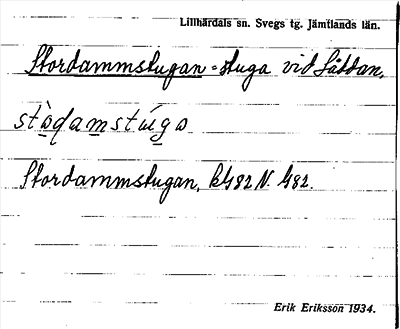 Lillhärdals sn. Svegs tg. Jämtlands län.
Stordammstugan = stuga vid Låddan.
stòɋamstúgo
Stordammstugan,
Erik Eriksson 1934.